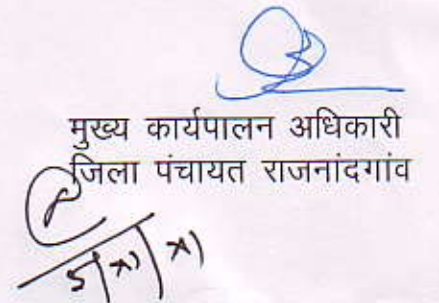 मुख्य कार्यपालन अधिकारी
जिला पंचायत राजनांदगांव